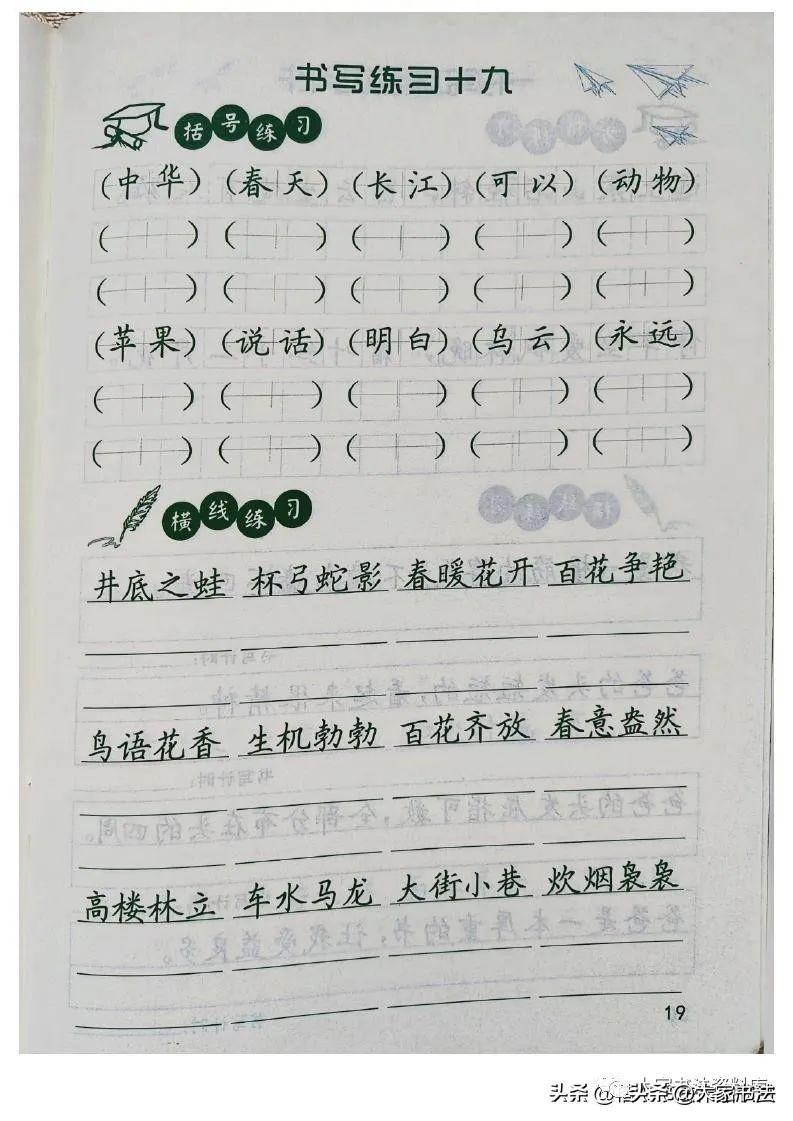 书写练习十九
括号练习
(中华) (春天) (长江) (可以) (动物)
(苹果) (说话) (明白) (乌云) (永远)
横线练习
井底之蛙 杯弓蛇影 春暖花开 百花争艳
鸟语花香 生机勃勃 百花齐放 春意盎然
高楼林立 车水马龙 大街小巷 炊烟袅袅
19
头条@大家书法